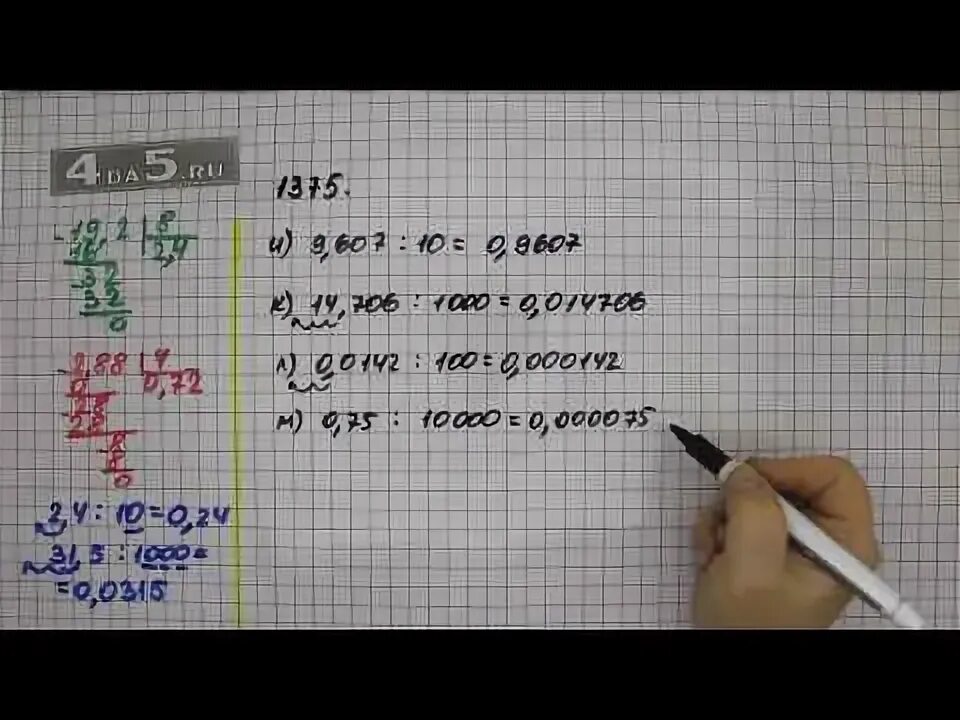 4на5.RU
19,2 | 8
16 2,4
32
32
0
2,88 | 4
0 0,72
28
28
8
8
0
2,4 : 10 = 0,24
31,5 : 1000 =
= 0,0315
1375.
и) 9,607 : 10 = 0,9607
к) 14,706 : 1000 = 0,014706
л) 0,0142 : 100 = 0,000142
м) 0,75 : 10000 = 0,000075